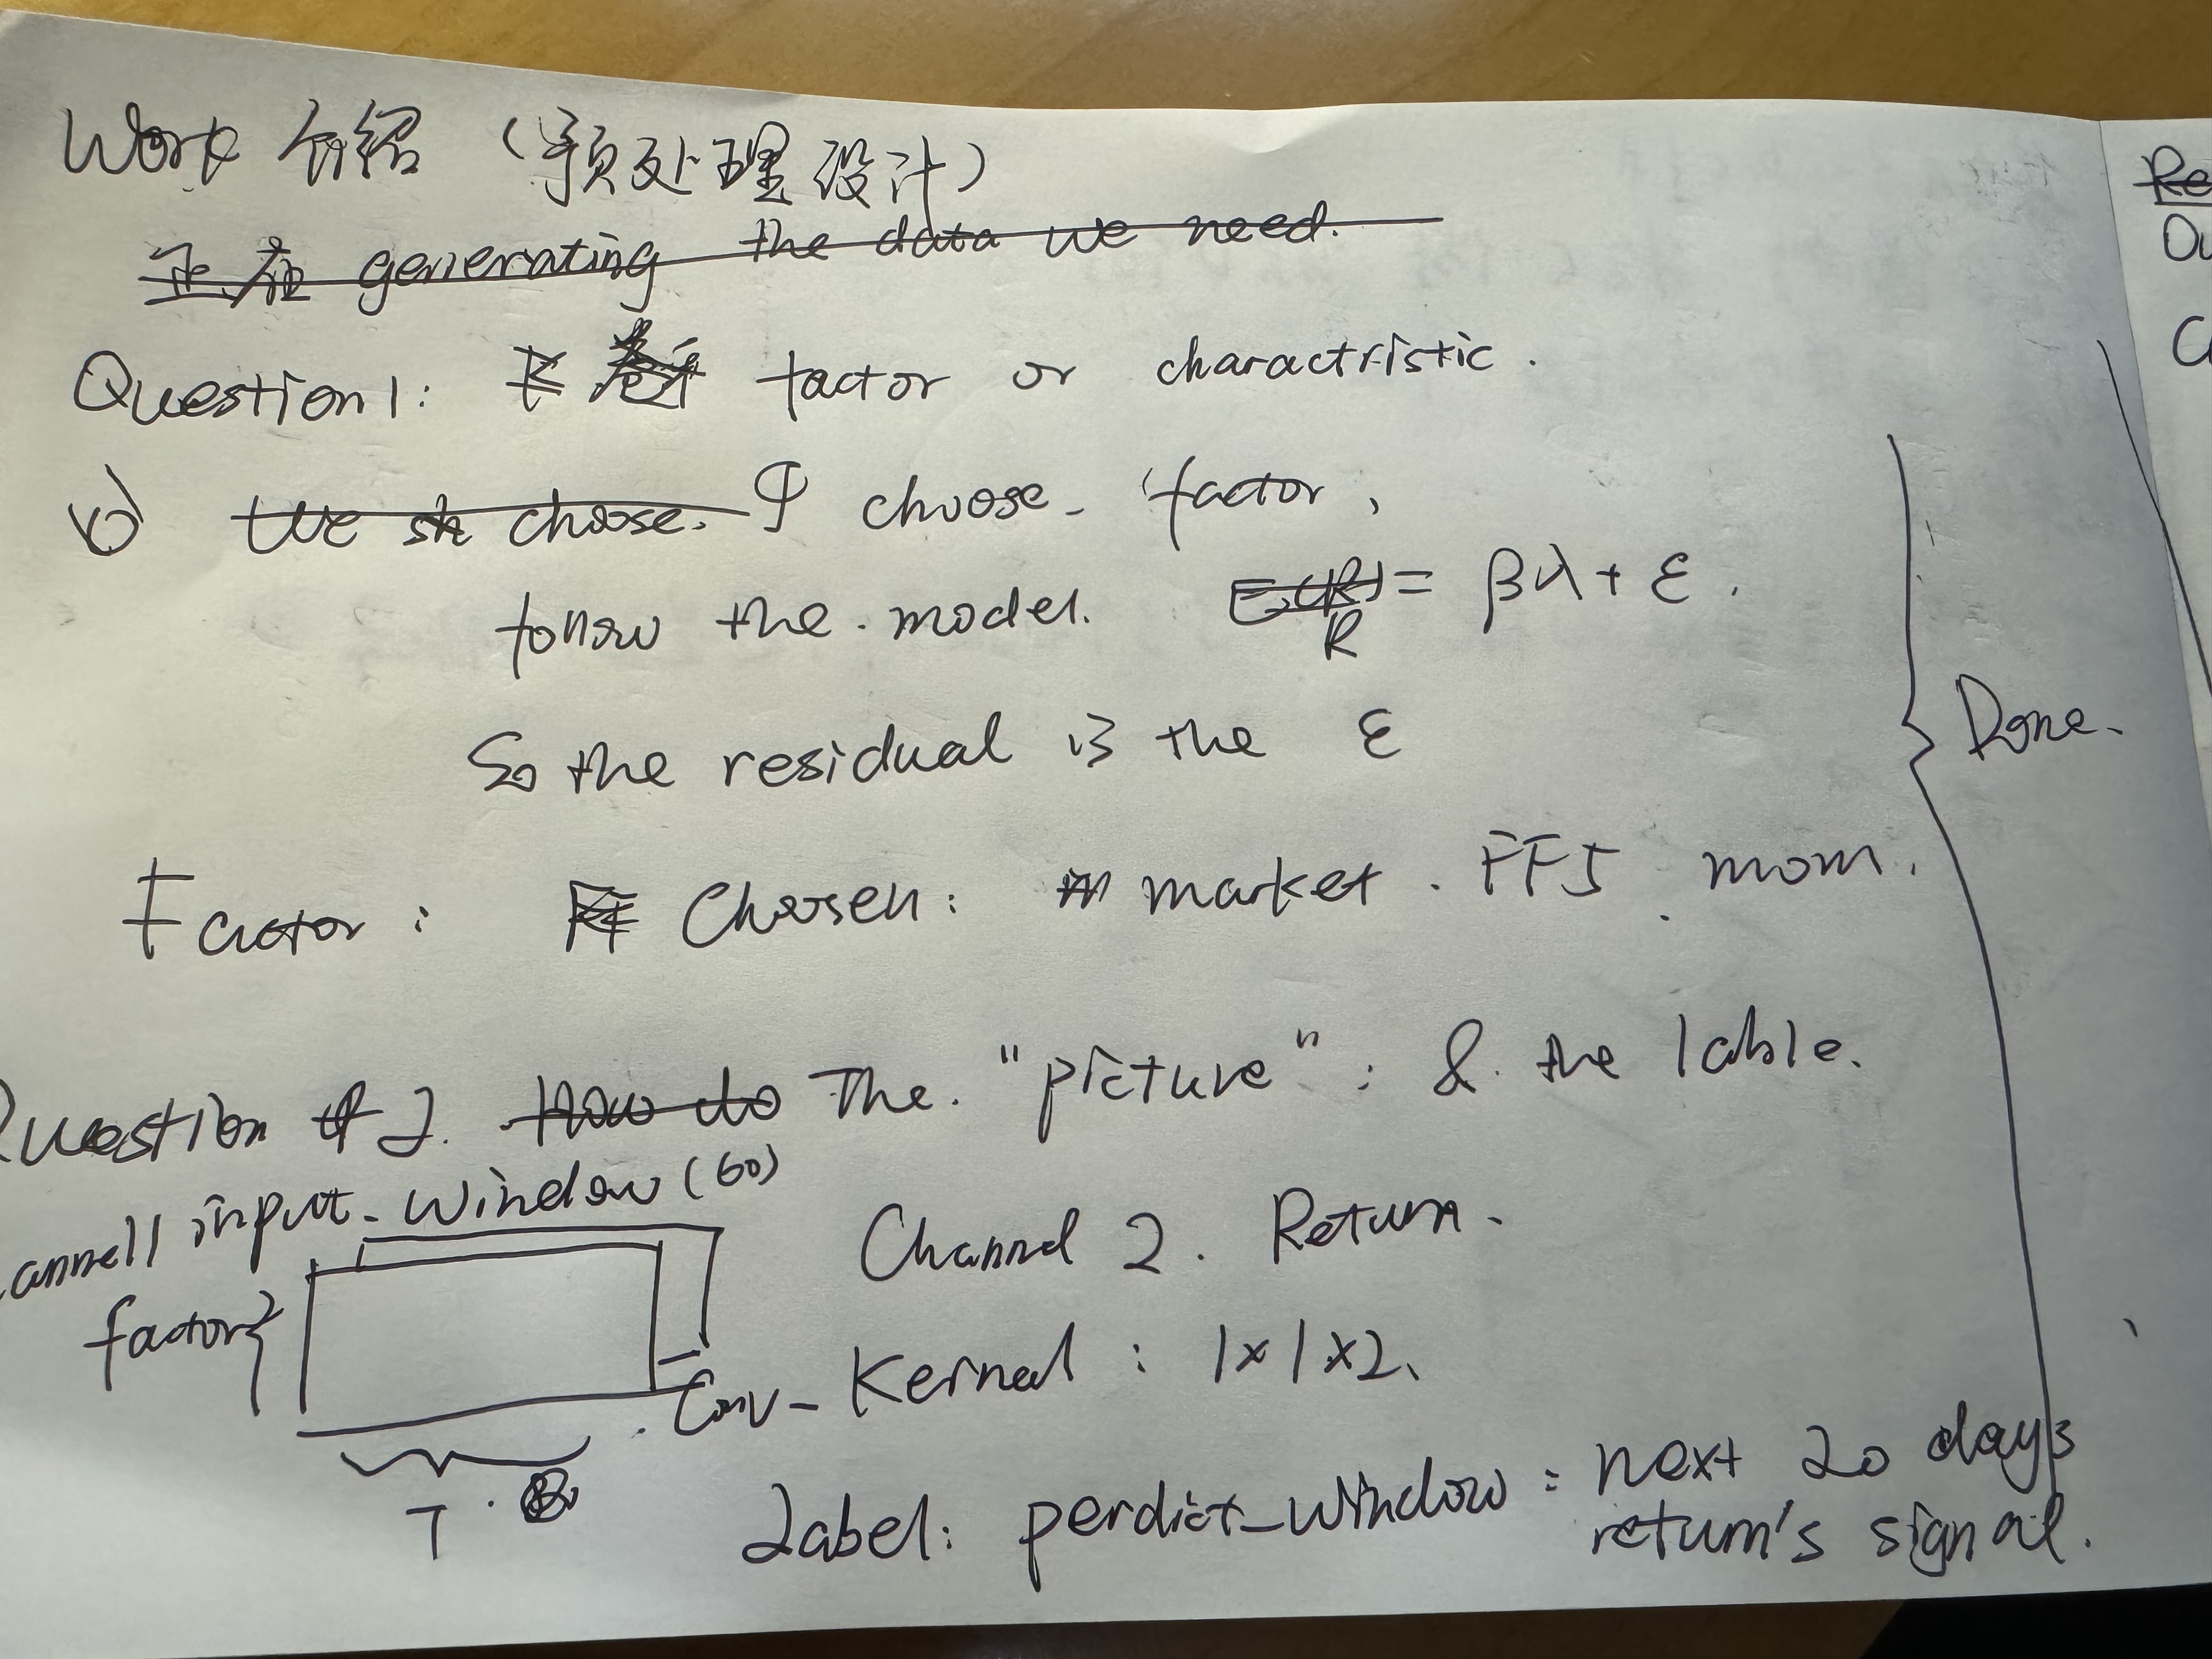 Work 介绍 (导员处理假设)
generating the data we need.
Question 1: factor or charactristic.
the choose. I choose factor,
follow the model. = βλ + ε.
So the residual is the ε
Factor: Chosen: market. FF5. mom.
Done.
Question of 2. How do The. "picture": & the lable.
input. window (60) Channel 2. Return.
factor
Conv-Kernel: 1x1x2.
T.
Label: perdict_window = next 20 days
return's signal.